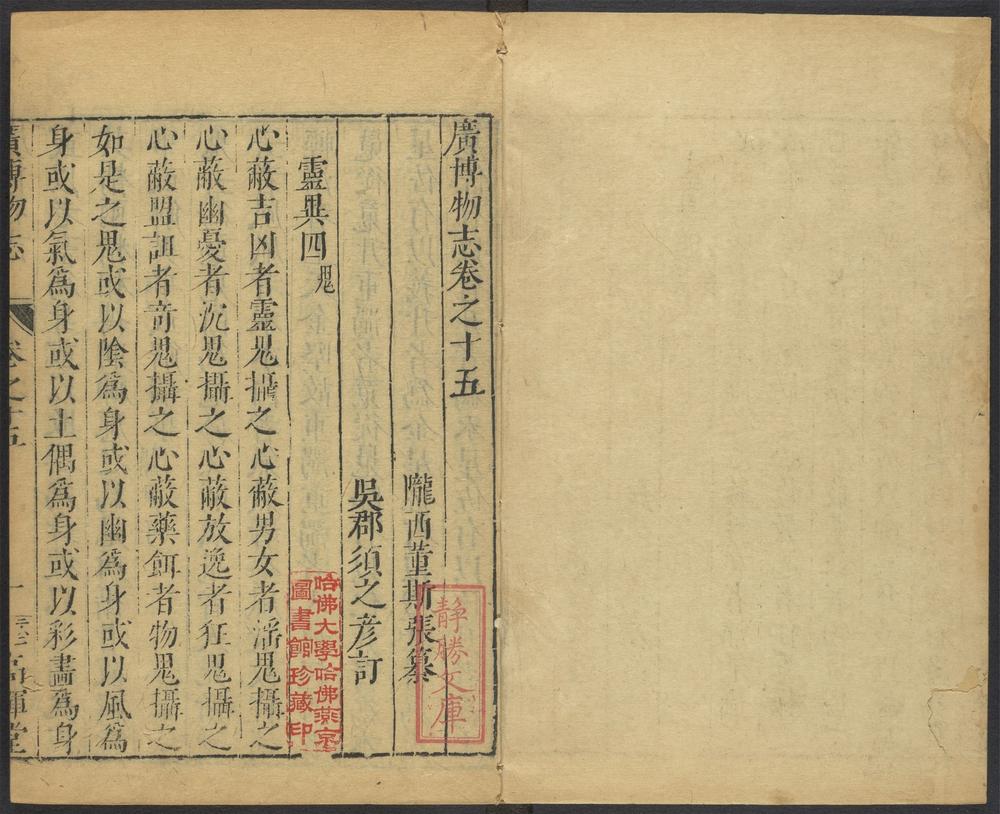 廣博物志卷之十五
隴西董斯張纂
吳郡須之彥訂
靈異四 鬼
心蔽吉凶者靈鬼攝之心蔽男女者淫鬼攝之
心蔽幽憂者沉鬼攝之心蔽放逸者狂鬼攝之
心蔽盟詛者奇鬼攝之心蔽藥餌者物鬼攝之
如是之鬼或以陰為身或以幽為身或以風為
身或以氣為身或以土偶為身或以彩畫為身
廣博物志 卷之十五 一 高暉堂
靜勝文庫
哈佛大學哈佛燕京
圖書館珍藏印